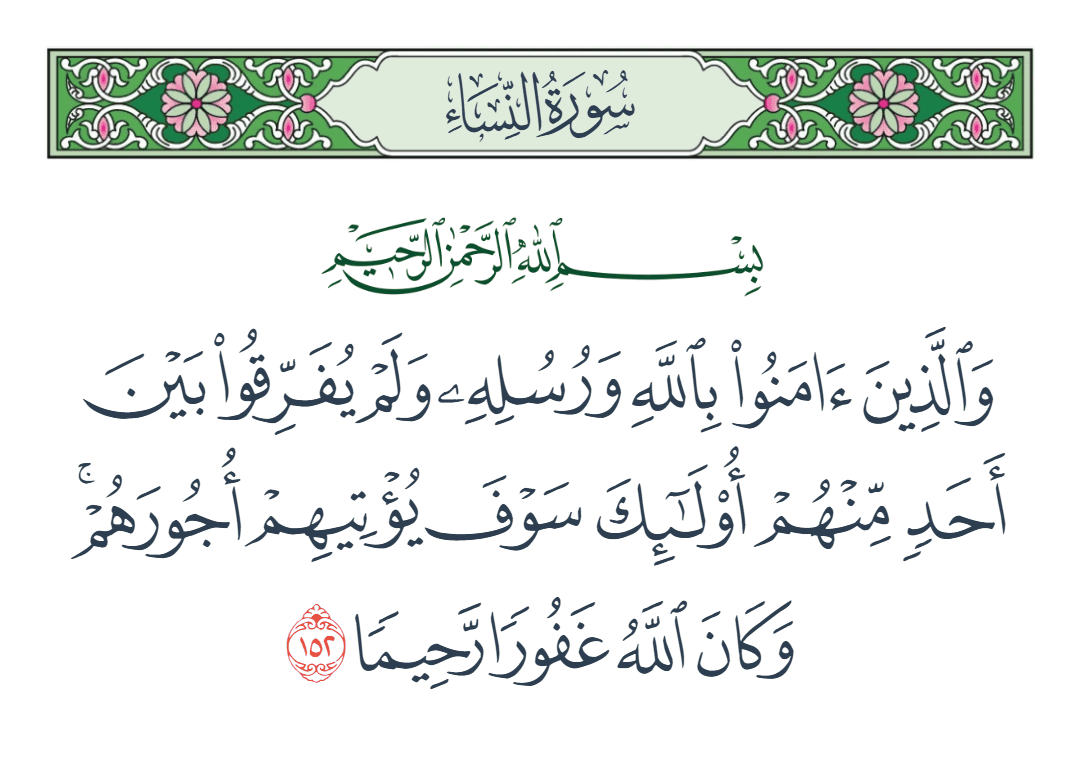 سُورَةُ النِّسَاءِ
بِسْمِ ٱللَّهِ ٱلرَّحْمَٰنِ ٱلرَّحِيمِ
وَٱلَّذِينَ ءَامَنُوا۟ بِٱللَّهِ وَرُسُلِهِۦ وَلَمْ يُفَرِّقُوا۟ بَيْنَ
أَحَدٍ مِّنْهُمْ أُو۟لَـٰٓئِكَ سَوْفَ يُؤْتِيهِمْ أُجُورَهُمْ ۚ
وَكَانَ ٱللَّهُ غَفُورًا رَّحِيمًا ١٥٢